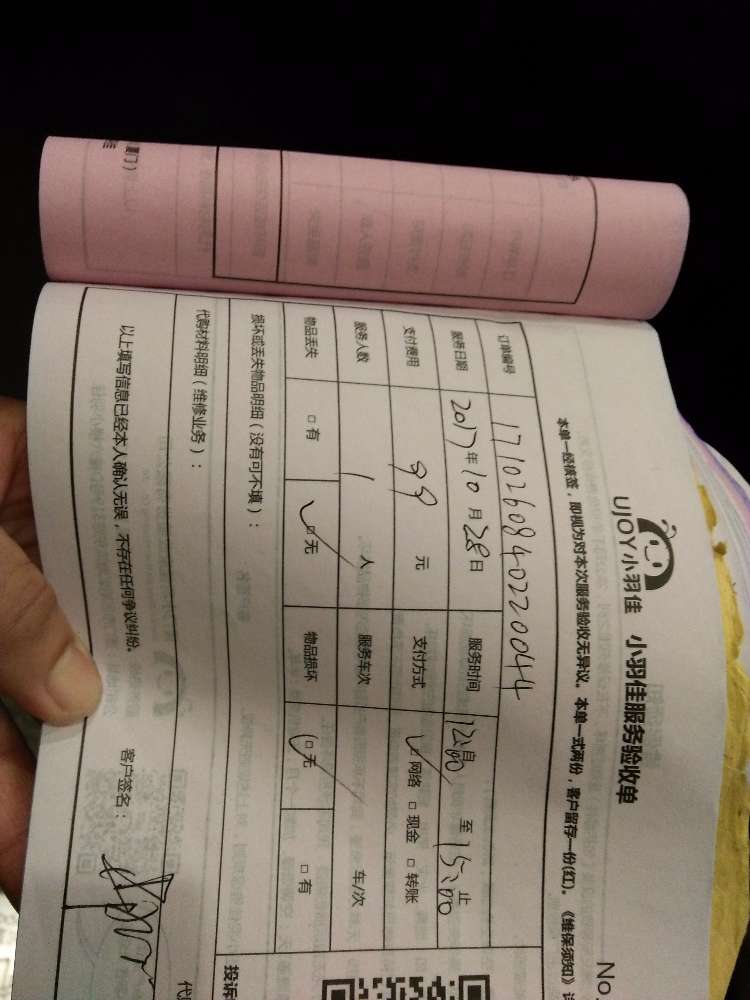 UJOY小羽佳 小羽佳服务验收单
No
本单一经核签，即视为对本次服务验收无异议。本单一式两份，客户留存一份(红)。《维保须知》
订单编号 171026084022044
服务日期 2017年10月28日 服务时间 12:00 自 至 15:00 止
支付费用 99 元 支付方式 网络 □ 现金 □ 转账
服务人数 1 人 服务车次 车/次
物品丢失 □ 有 □ 无 物品损坏 □ 无 □ 有
损坏或丢失物品明细（没有可不填）：
代购材料明细（维修业务）：
以上填写信息已经本人确认无误，不存在任何争议纠纷。
客户签名：
投诉